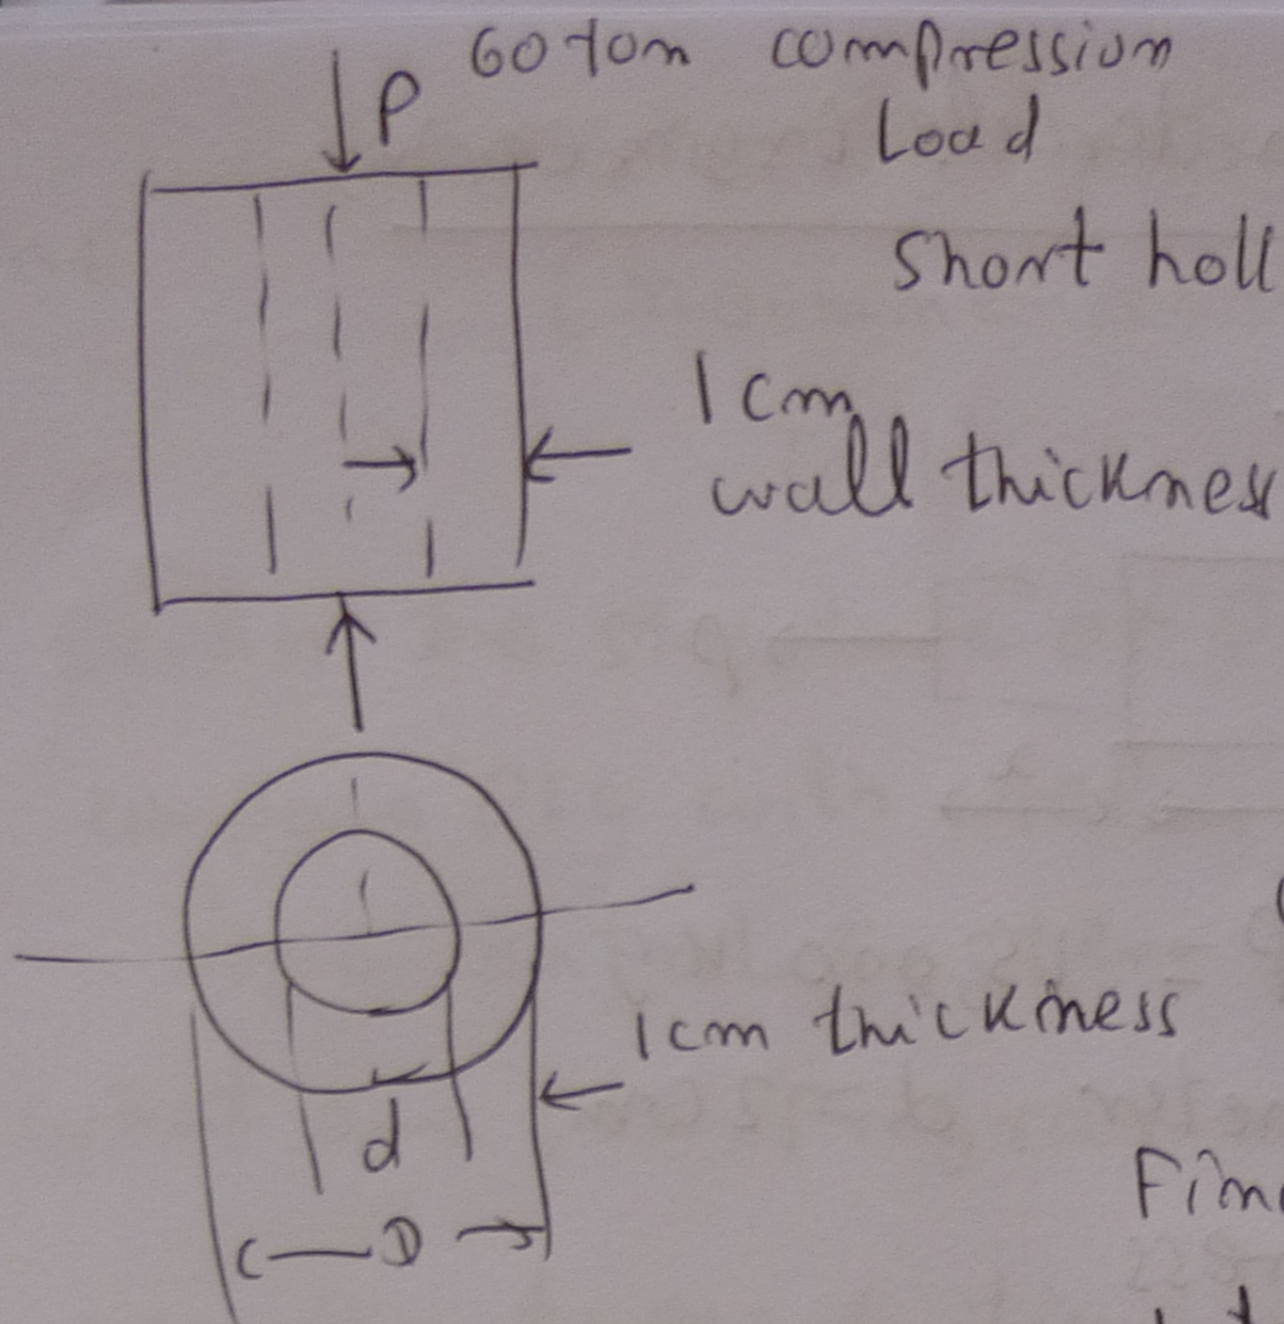 P 60 ton compression
Load
Short holl
1 cm
wall thickness
1cm thickness
d
D
Fin